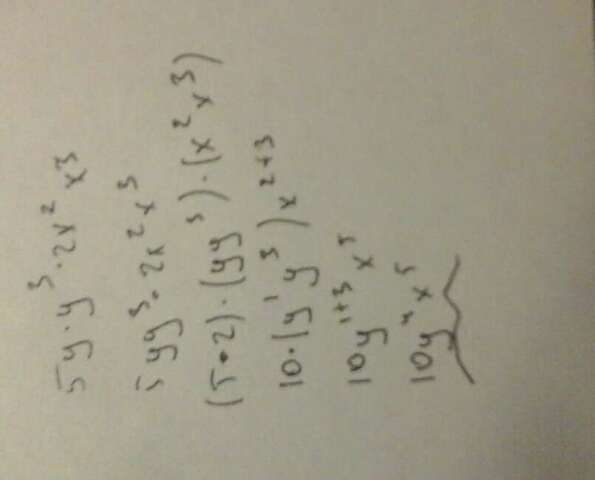 5y·y³·2x²x³
5yy³·2x²x³
(5·2)·(yy³)·(x²x³)
10·(y¹y³)x²⁺³
10y¹⁺³x⁵
10y⁴x⁵